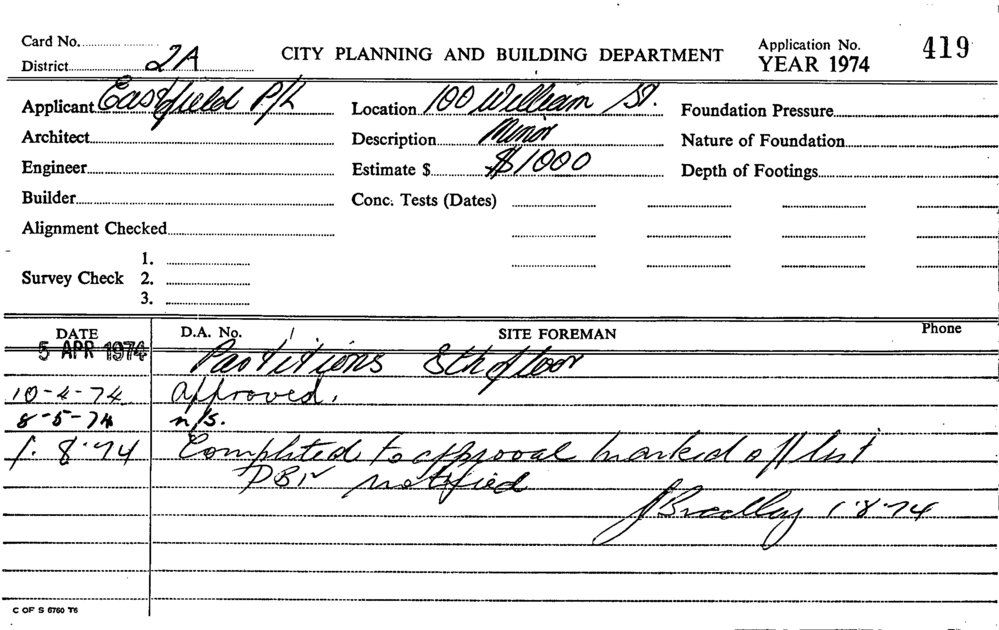 Card No.
District 2A
CITY PLANNING AND BUILDING DEPARTMENT
Application No. 419
YEAR 1974
Applicant Eastfield P/L
Location 100 William St.
Foundation Pressure
Architect
Description Minor
Nature of Foundation
Engineer
Estimate $ $1000
Depth of Footings
Builder
Conc. Tests (Dates)
Alignment Checked
Survey Check 1.
2.
3.
DATE D.A. No. SITE FOREMAN Phone
5 APR 1974 Partitions 8th floor
10-4-74 Approved.
8-5-74 n/s.
1.8.74 Completed to approval marked off list
notified
J Bradley 1.8.74
C OF S 6760 T6